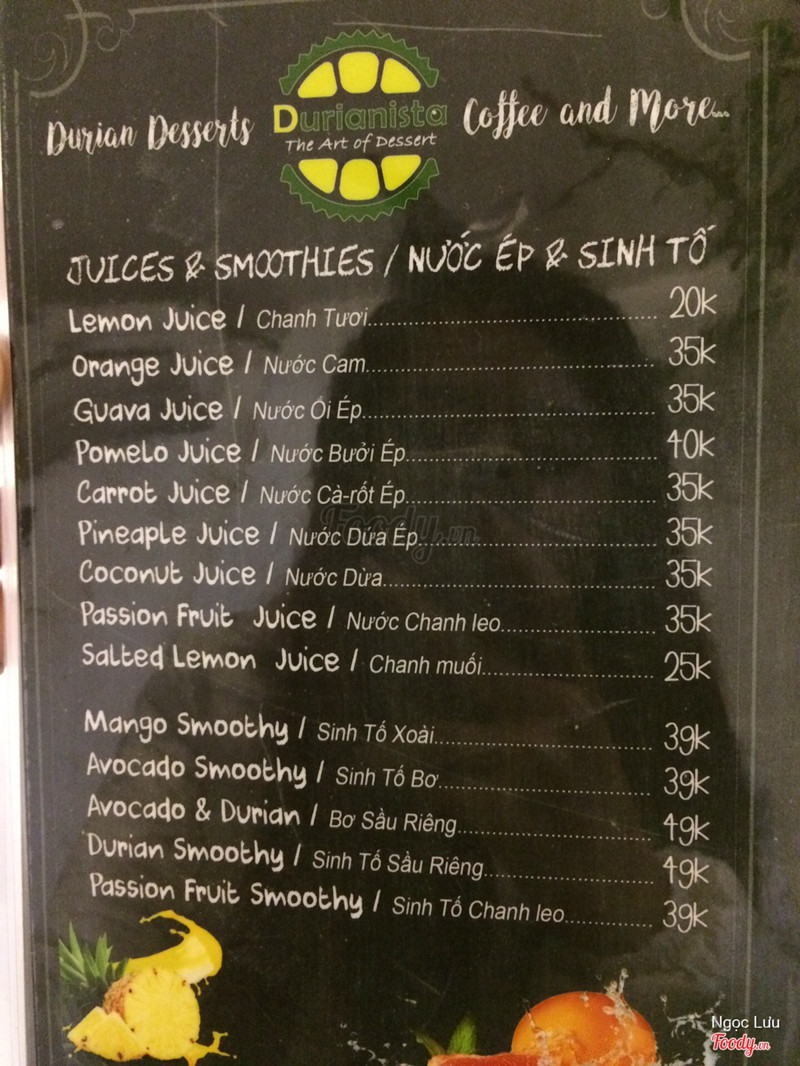 Durian Desserts
Durianista
The Art of Dessert
Coffee and More...
JUICES & SMOOTHIES / NƯỚC ÉP & SINH TỐ
Lemon Juice / Chanh Tươi 20k
Orange Juice / Nước Cam 35k
Guava Juice / Nước Ổi Ép 35k
Pomelo Juice / Nước Bưởi Ép 40k
Carrot Juice / Nước Cà-rốt Ép 35k
Pineaple Juice / Nước Dứa Ép 35k
Coconut Juice / Nước Dừa 35k
Passion Fruit Juice / Nước Chanh leo 35k
Salted Lemon Juice / Chanh muối 25k
Mango Smoothy / Sinh Tố Xoài 39k
Avocado Smoothy / Sinh Tố Bơ 39k
Avocado & Durian / Bơ Sầu Riêng 49k
Durian Smoothy / Sinh Tố Sầu Riêng 49k
Passion Fruit Smoothy / Sinh Tố Chanh leo 39k
Foody.vn
Ngọc Lưu
Foody.vn